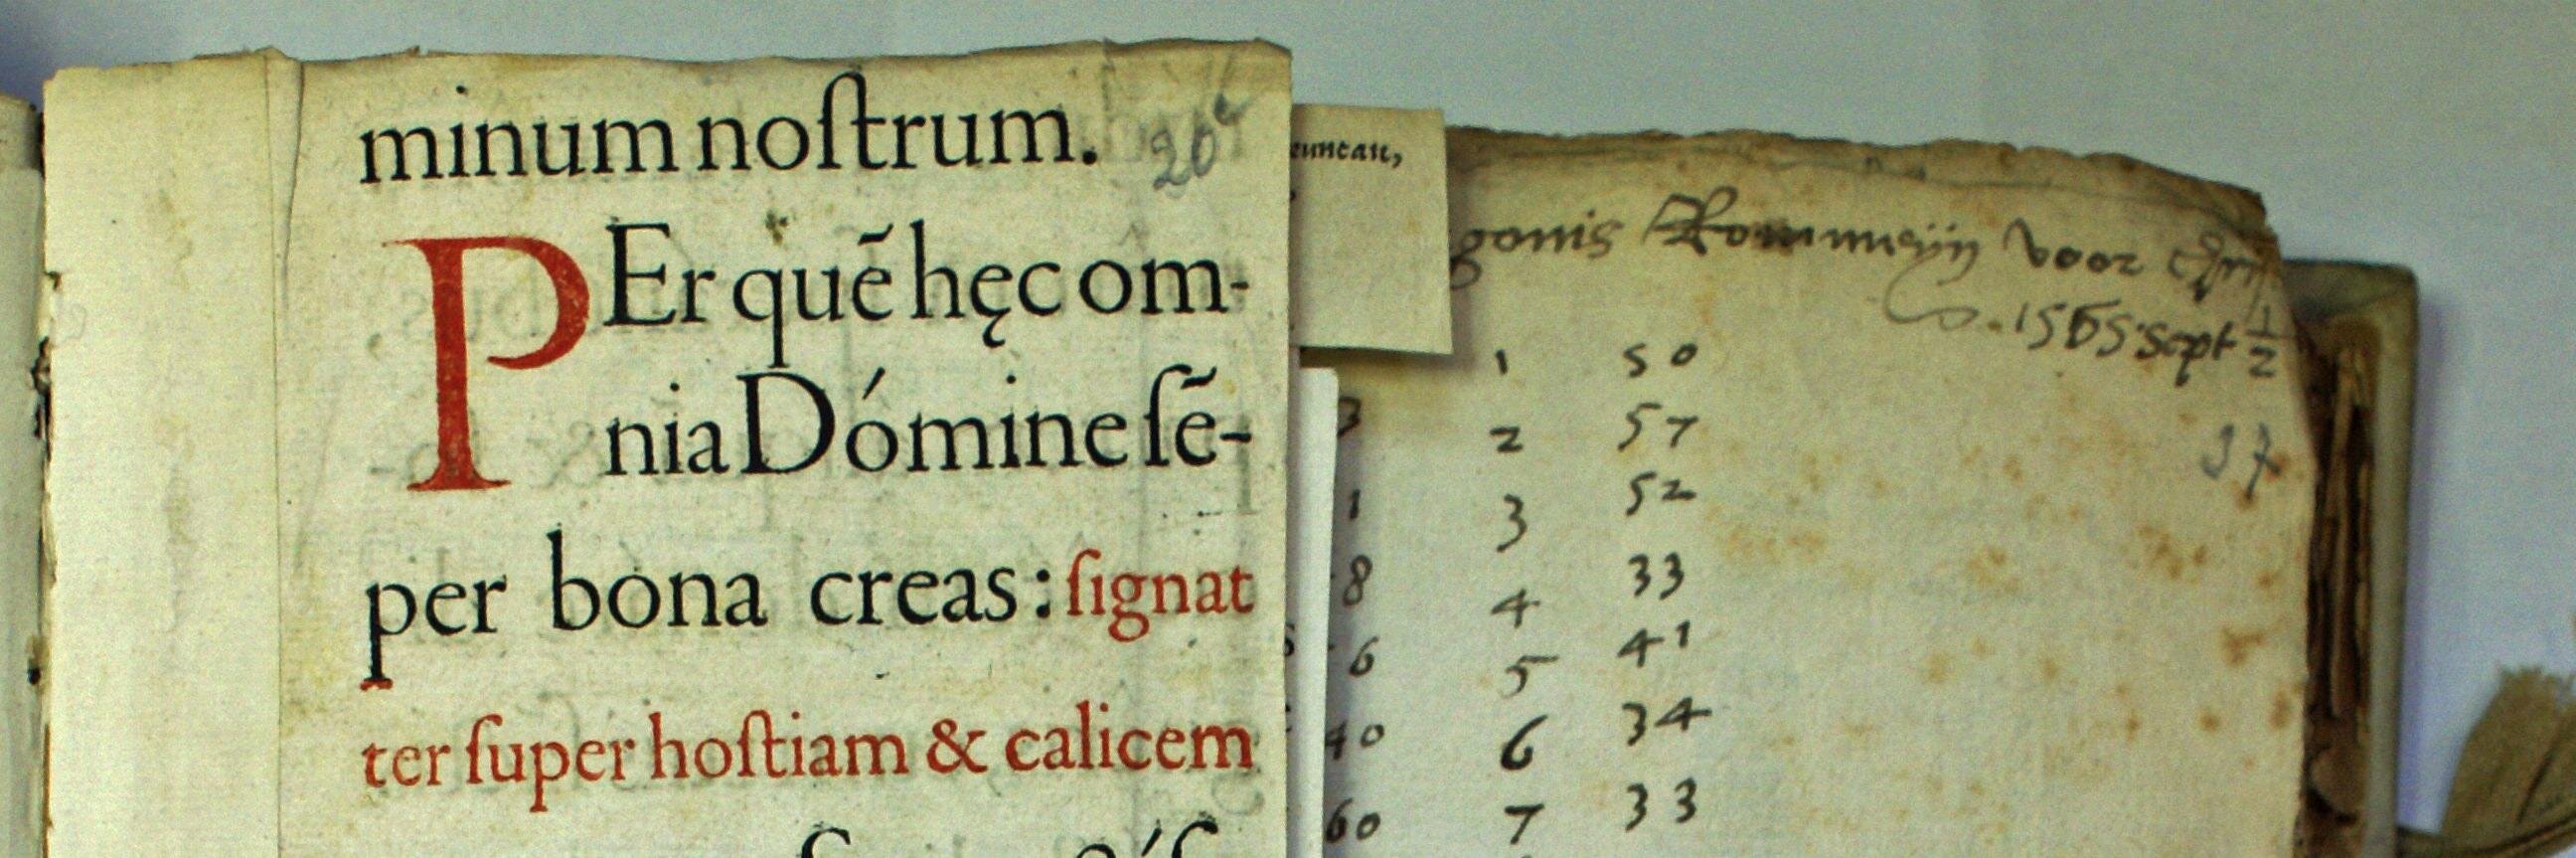 minum noſtrum. 20e
PEr quē hęc om-
nia Dómine ſē-
per bona creas: ſignat
ter ſuper hoſtiam & calicem
gonis Rommeyn voor
1565 Sept 1/2
37
1 50
3 2 57
1 3 52
8 4 33
6 5 41
40 6 34
60 7 33